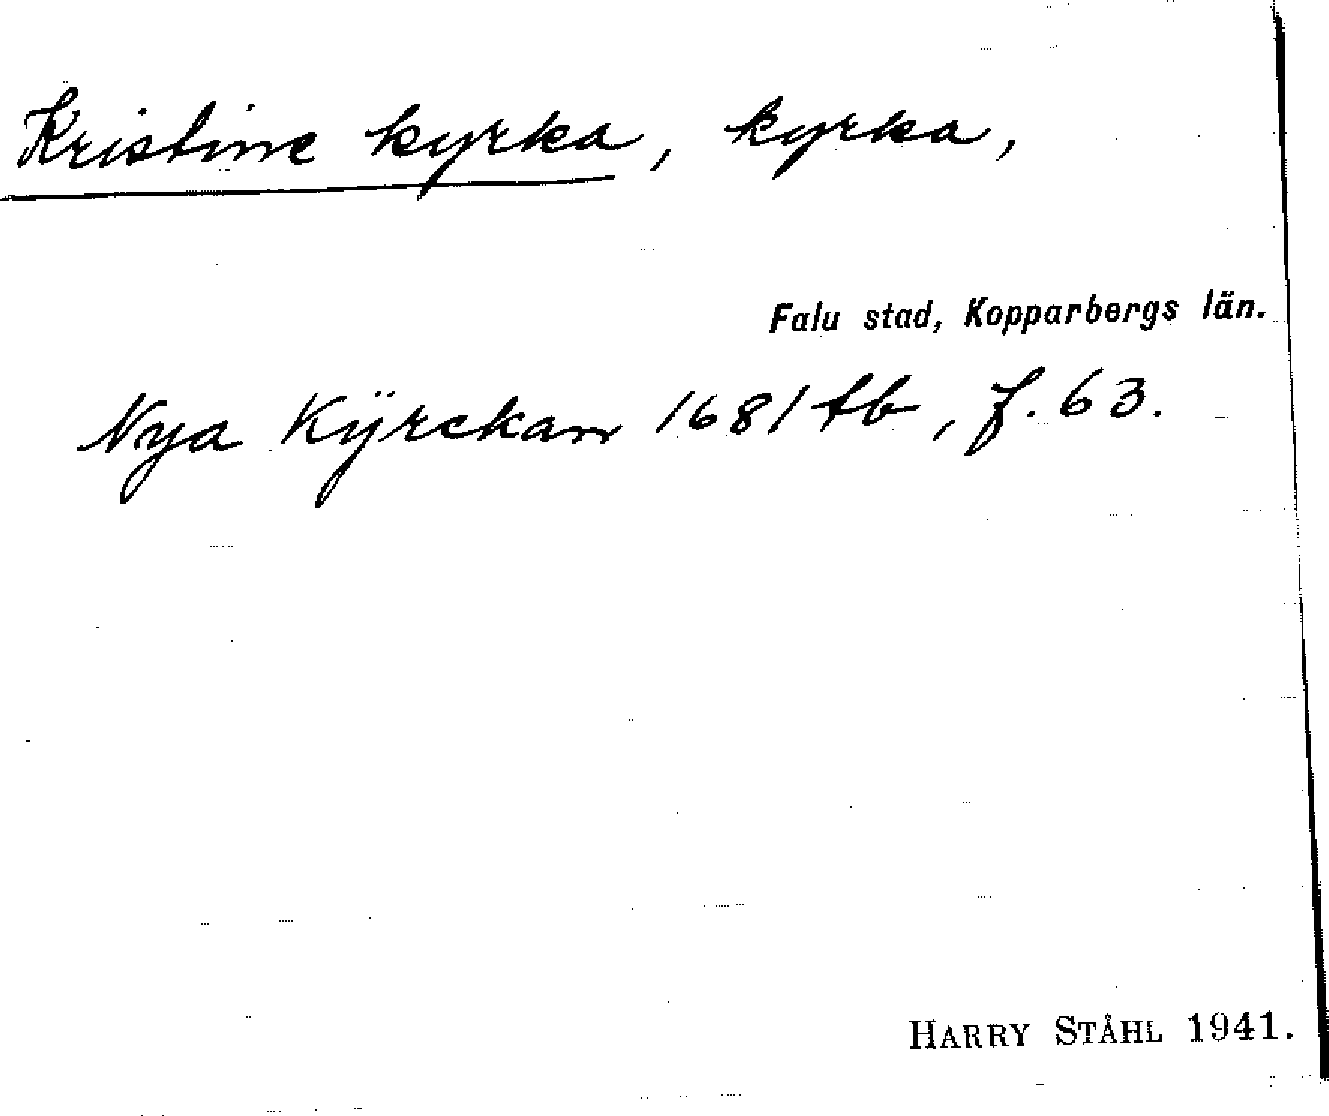 Kristine kyrka, kyrka,
Falu stad, Kopparbergs län.
Nya Kÿrckan 1681 tb, f. 63.
HARRY STÅHL 1941.